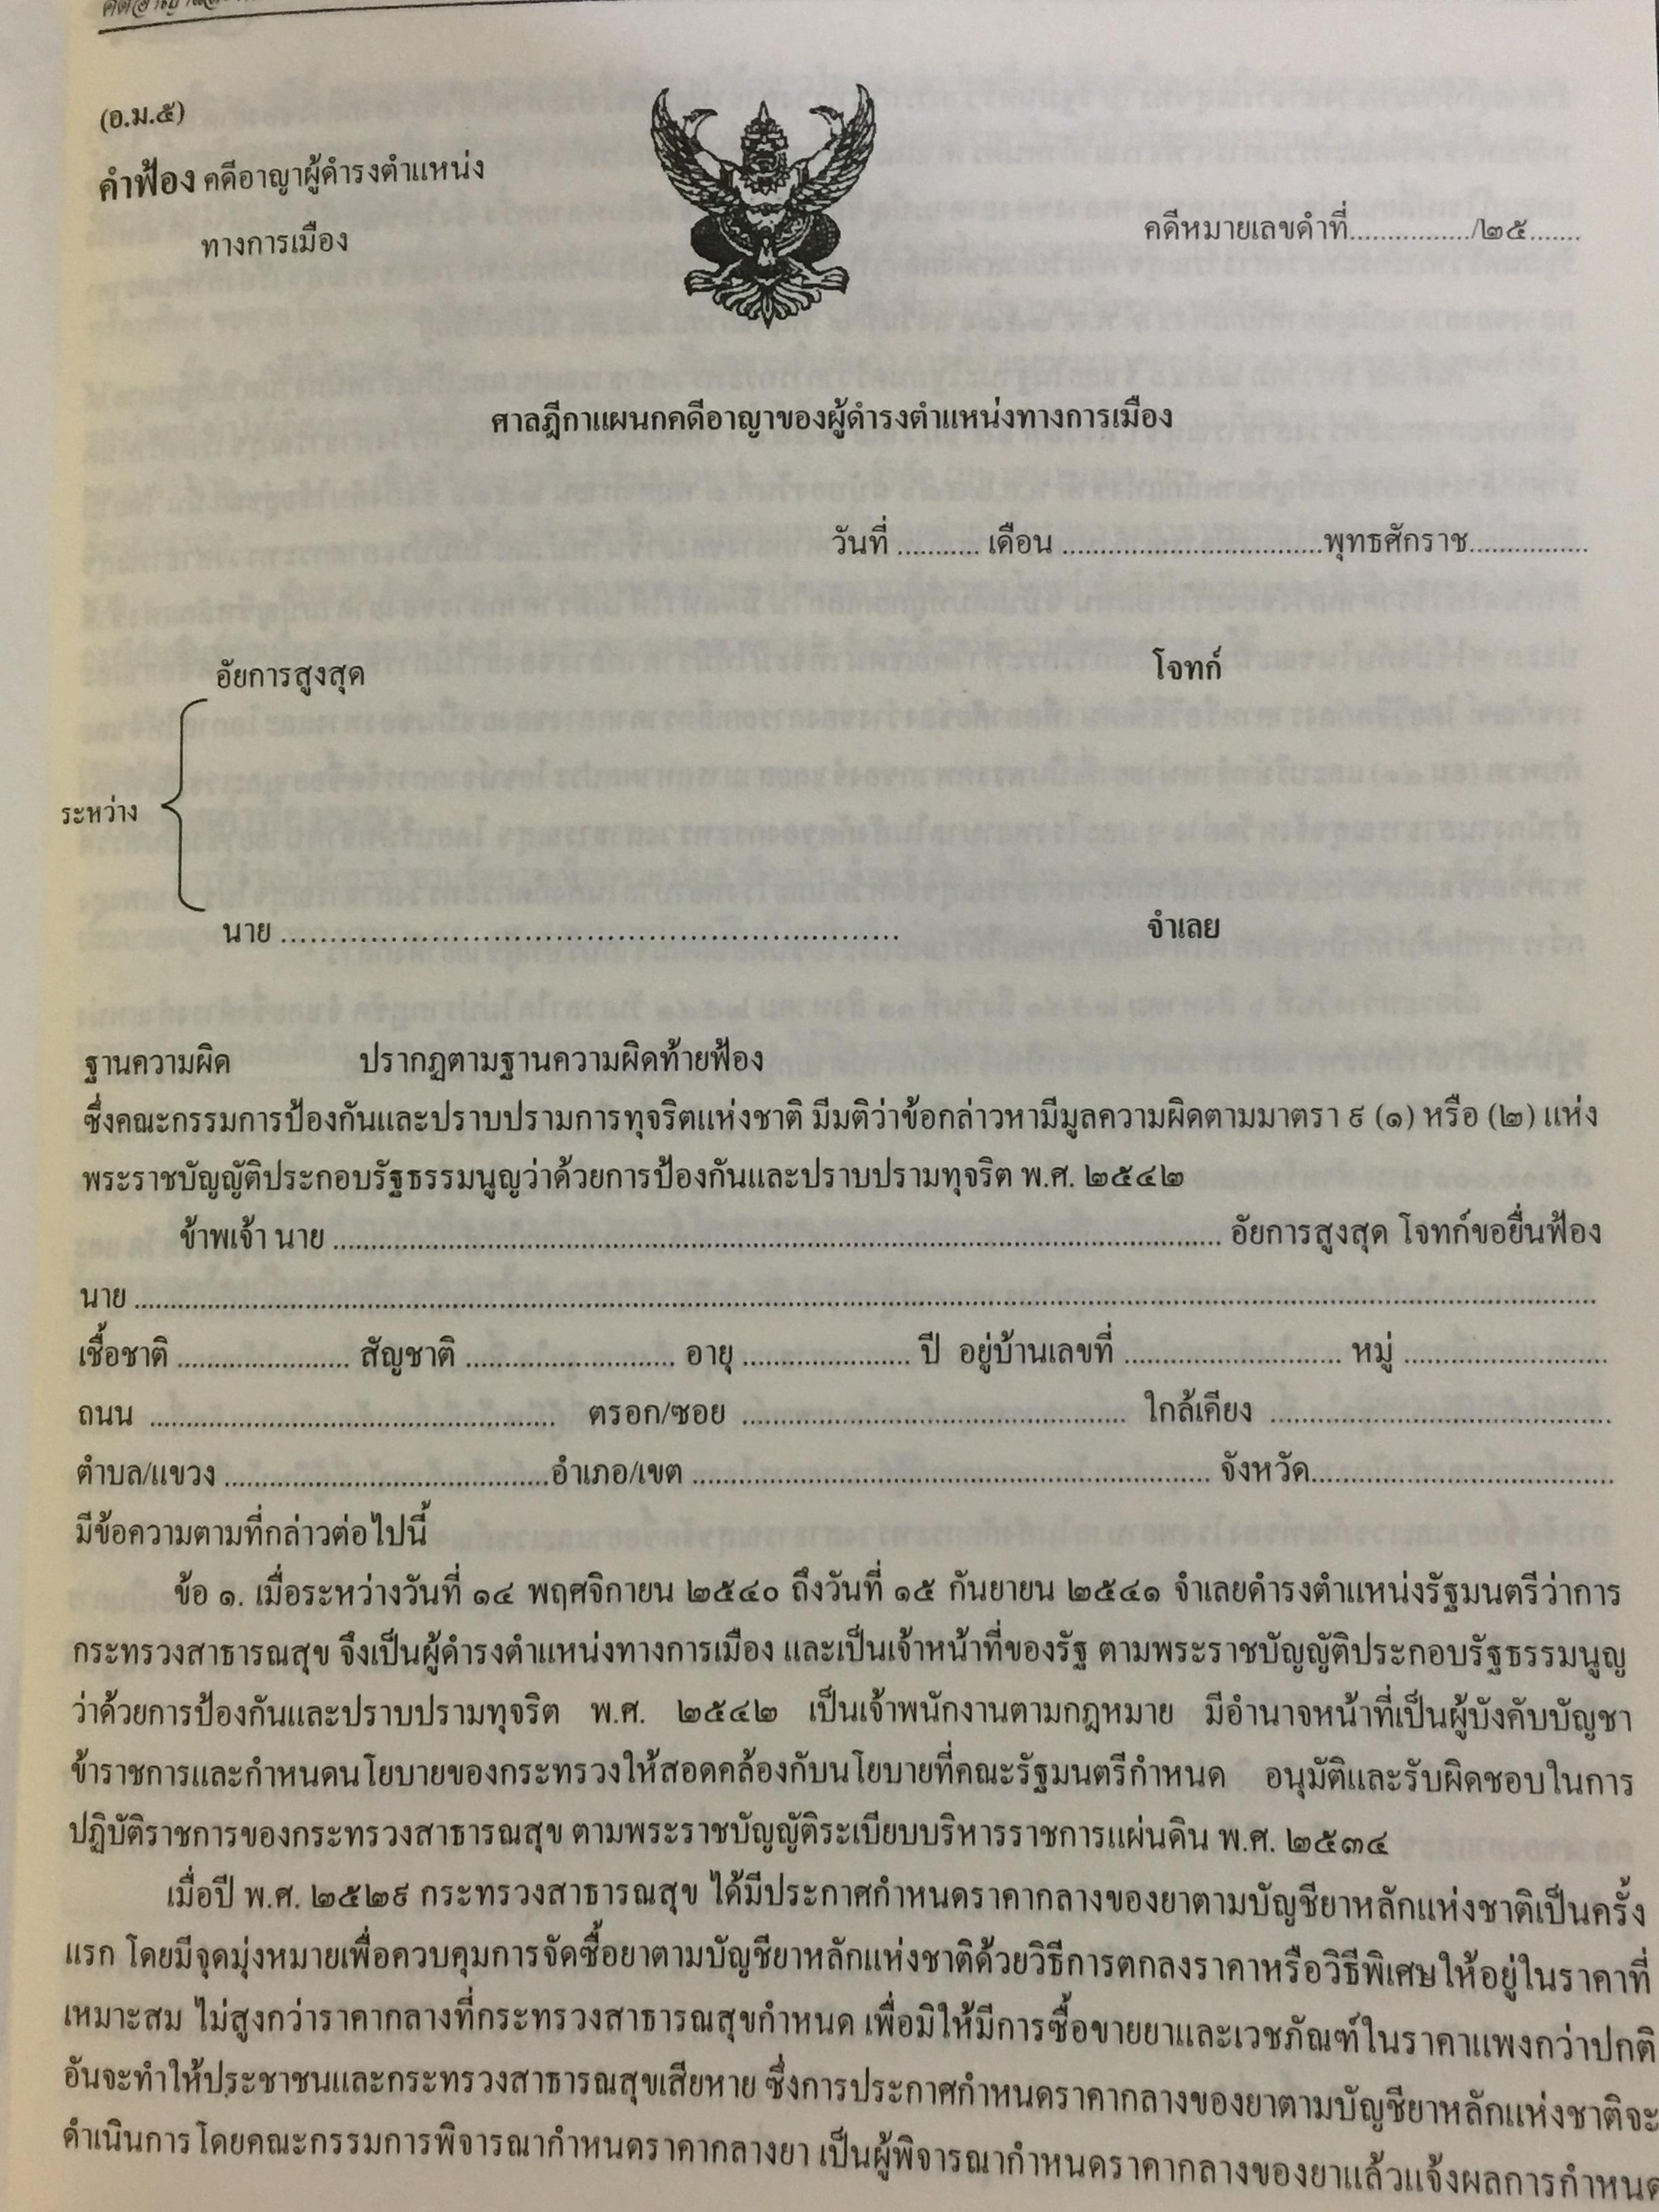 (อ.ม.๕)
คำฟ้อง คดีอาญาผู้ดำรงตำแหน่ง
ทางการเมือง
คดีหมายเลขดำที่................/๒๕.......
ศาลฎีกาแผนกคดีอาญาของผู้ดำรงตำแหน่งทางการเมือง
วันที่ ........... เดือน ..................................พุทธศักราช................
อัยการสูงสุด โจทก์
ระหว่าง
นาย .............................................................. จำเลย
ฐานความผิด ปรากฏตามฐานความผิดท้ายฟ้อง
ซึ่งคณะกรรมการป้องกันและปราบปรามการทุจริตแห่งชาติ มีมติว่าข้อกล่าวหามีมูลความผิดตามมาตรา ๙ (๑) หรือ (๒) แห่ง
พระราชบัญญัติประกอบรัฐธรรมนูญว่าด้วยการป้องกันและปราบปรามทุจริต พ.ศ. ๒๕๔๒
ข้าพเจ้า นาย .................................................................................... อัยการสูงสุด โจทก์ขอยื่นฟ้อง
นาย ....................................................................................................................................
เชื้อชาติ ....................... สัญชาติ ............................ อายุ ...................... ปี อยู่บ้านเลขที่ ............................. หมู่ ...........................
ถนน ...................................................... ตรอก/ซอย ................................................... ใกล้เคียง .............................................
ตำบล/แขวง ...........................................อำเภอ/เขต ..................................................................... จังหวัด........................................
มีข้อความตามที่กล่าวต่อไปนี้
ข้อ ๑. เมื่อระหว่างวันที่ ๑๔ พฤศจิกายน ๒๕๔๐ ถึงวันที่ ๑๕ กันยายน ๒๕๔๑ จำเลยดำรงตำแหน่งรัฐมนตรีว่าการ
กระทรวงสาธารณสุข จึงเป็นผู้ดำรงตำแหน่งทางการเมือง และเป็นเจ้าหน้าที่ของรัฐ ตามพระราชบัญญัติประกอบรัฐธรรมนูญ
ว่าด้วยการป้องกันและปราบปรามทุจริต พ.ศ. ๒๕๔๒ เป็นเจ้าพนักงานตามกฎหมาย มีอำนาจหน้าที่เป็นผู้บังคับบัญชา
ข้าราชการและกำหนดนโยบายของกระทรวงให้สอดคล้องกับนโยบายที่คณะรัฐมนตรีกำหนด อนุมัติและรับผิดชอบในการ
ปฏิบัติราชการของกระทรวงสาธารณสุข ตามพระราชบัญญัติระเบียบบริหารราชการแผ่นดิน พ.ศ. ๒๕๓๔
เมื่อปี พ.ศ. ๒๕๒๙ กระทรวงสาธารณสุข ได้มีประกาศกำหนดราคากลางของยาตามบัญชียาหลักแห่งชาติเป็นครั้ง
แรก โดยมีจุดมุ่งหมายเพื่อควบคุมการจัดซื้อยาตามบัญชียาหลักแห่งชาติด้วยวิธีการตกลงราคาหรือวิธีพิเศษให้อยู่ในราคาที่
เหมาะสม ไม่สูงกว่าราคากลางที่กระทรวงสาธารณสุขกำหนด เพื่อมิให้มีการซื้อขายยาและเวชภัณฑ์ในราคาแพงกว่าปกติ
อันจะทำให้ประชาชนและกระทรวงสาธารณสุขเสียหาย ซึ่งการประกาศกำหนดราคากลางของยาตามบัญชียาหลักแห่งชาติจะ
ดำเนินการโดยคณะกรรมการพิจารณากำหนดราคากลางยา เป็นผู้พิจารณากำหนดราคากลางของยาแล้วแจ้งผลการกำหนด